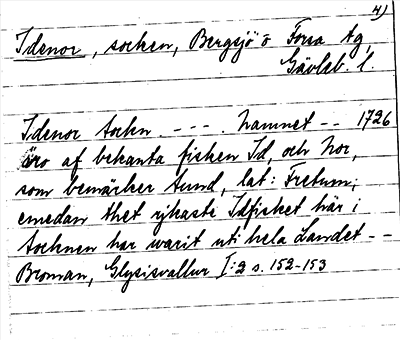 4)
Idenor, socken, Bergsjö o Forsa tg,
Gävleb. l.
Idenor sockn. - - - . Namnet - - 1726
äro af bekanta fisken Id, och Nor,
som bemärker sund, lat: Fretum;
emedan thet rijkaste Idfisket här i
socknen har warit uti hela Landet - -
Broman, Glysisvallur I:2 s. 152-153